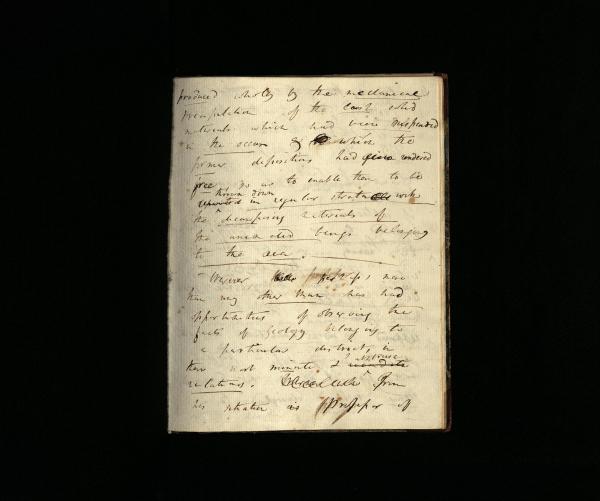 produced wholly by the mechanical
precipitation of the last solid
materials which had been suspended
in the ocean & which the
former depositions had rendered
free so as to enable them to be
thrown down
in regular strata with
the decomposing materials of
the animated beings belonging
to the sea.
Werner perhaps, more
than any other man has had
opportunities of observing the
facts of Geology belonging to
a particular district, in
their most minute & abstruse
relations. From
his situation as Professor of